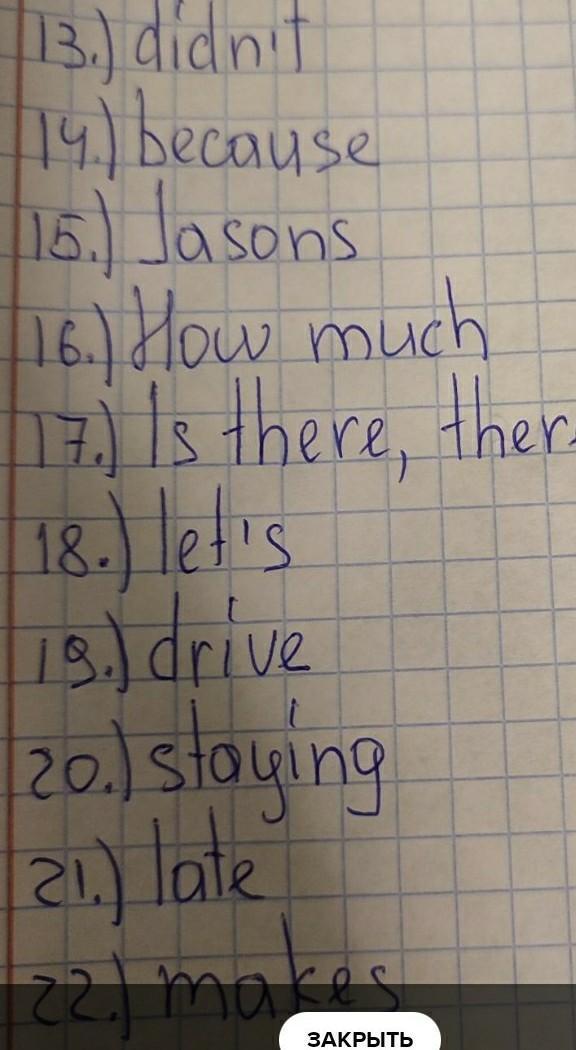 13.) didn't
14.) because
15.) Jasons
16.) How much
17.) Is there,
18.) let's
19.) drive
20.) staying
21.) late
22.) makes
ЗАКРЫТЬ